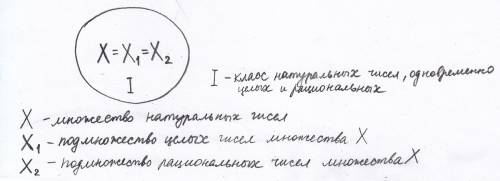 X = X₁ = X₂
I
I - класс натуральных чисел, одновременно
целых и рациональных
X - множество натуральных чисел
X₁ - подмножество целых чисел множества X
X₂ - подмножество рациональных чисел множества X